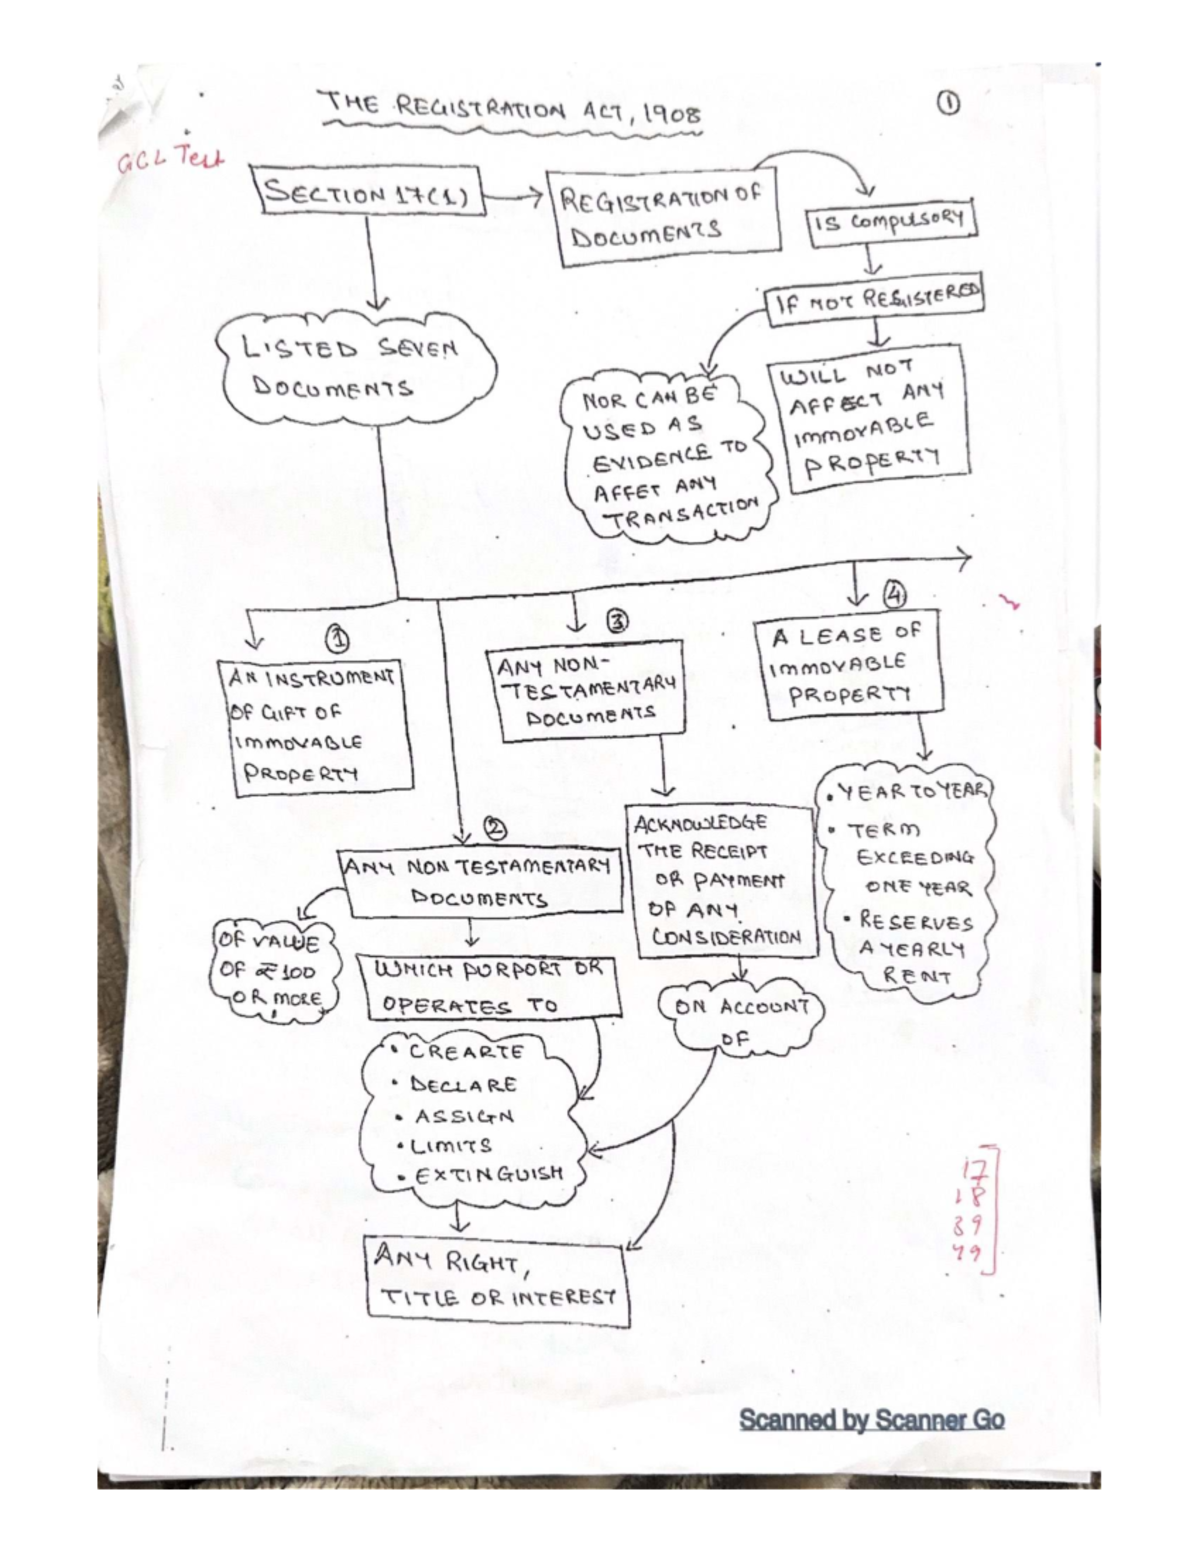 THE REGISTRATION ACT, 1908
①
GCL Test
SECTION 17(1)
REGISTRATION OF
DOCUMENTS
IS COMPULSORY
IF NOT REGISTERED
WILL NOT
AFFECT ANY
IMMOVABLE
PROPERTY
NOR CAN BE
USED AS
EVIDENCE TO
AFFET ANY
TRANSACTION
LISTED SEVEN
DOCUMENTS
①
AN INSTRUMENT
OF GIFT OF
IMMOVABLE
PROPERTY
②
ANY NON TESTAMENTARY
DOCUMENTS
OF VALUE
OF ₹100
OR MORE
WHICH PURPORT OR
OPERATES TO
• CREARTE
• DECLARE
• ASSIGN
• LIMITS
• EXTINGUISH
ANY RIGHT,
TITLE OR INTEREST
③
ANY NON-
TESTAMENTARY
DOCUMENTS
ACKNOWLEDGE
THE RECEIPT
OR PAYMENT
OF ANY
CONSIDERATION
ON ACCOUNT
OF
④
A LEASE OF
IMMOVABLE
PROPERTY
• YEAR TO YEAR
• TERM
EXCEEDING
ONE YEAR
• RESERVES
A YEARLY
RENT
17
18
39
49
Scanned by Scanner Go